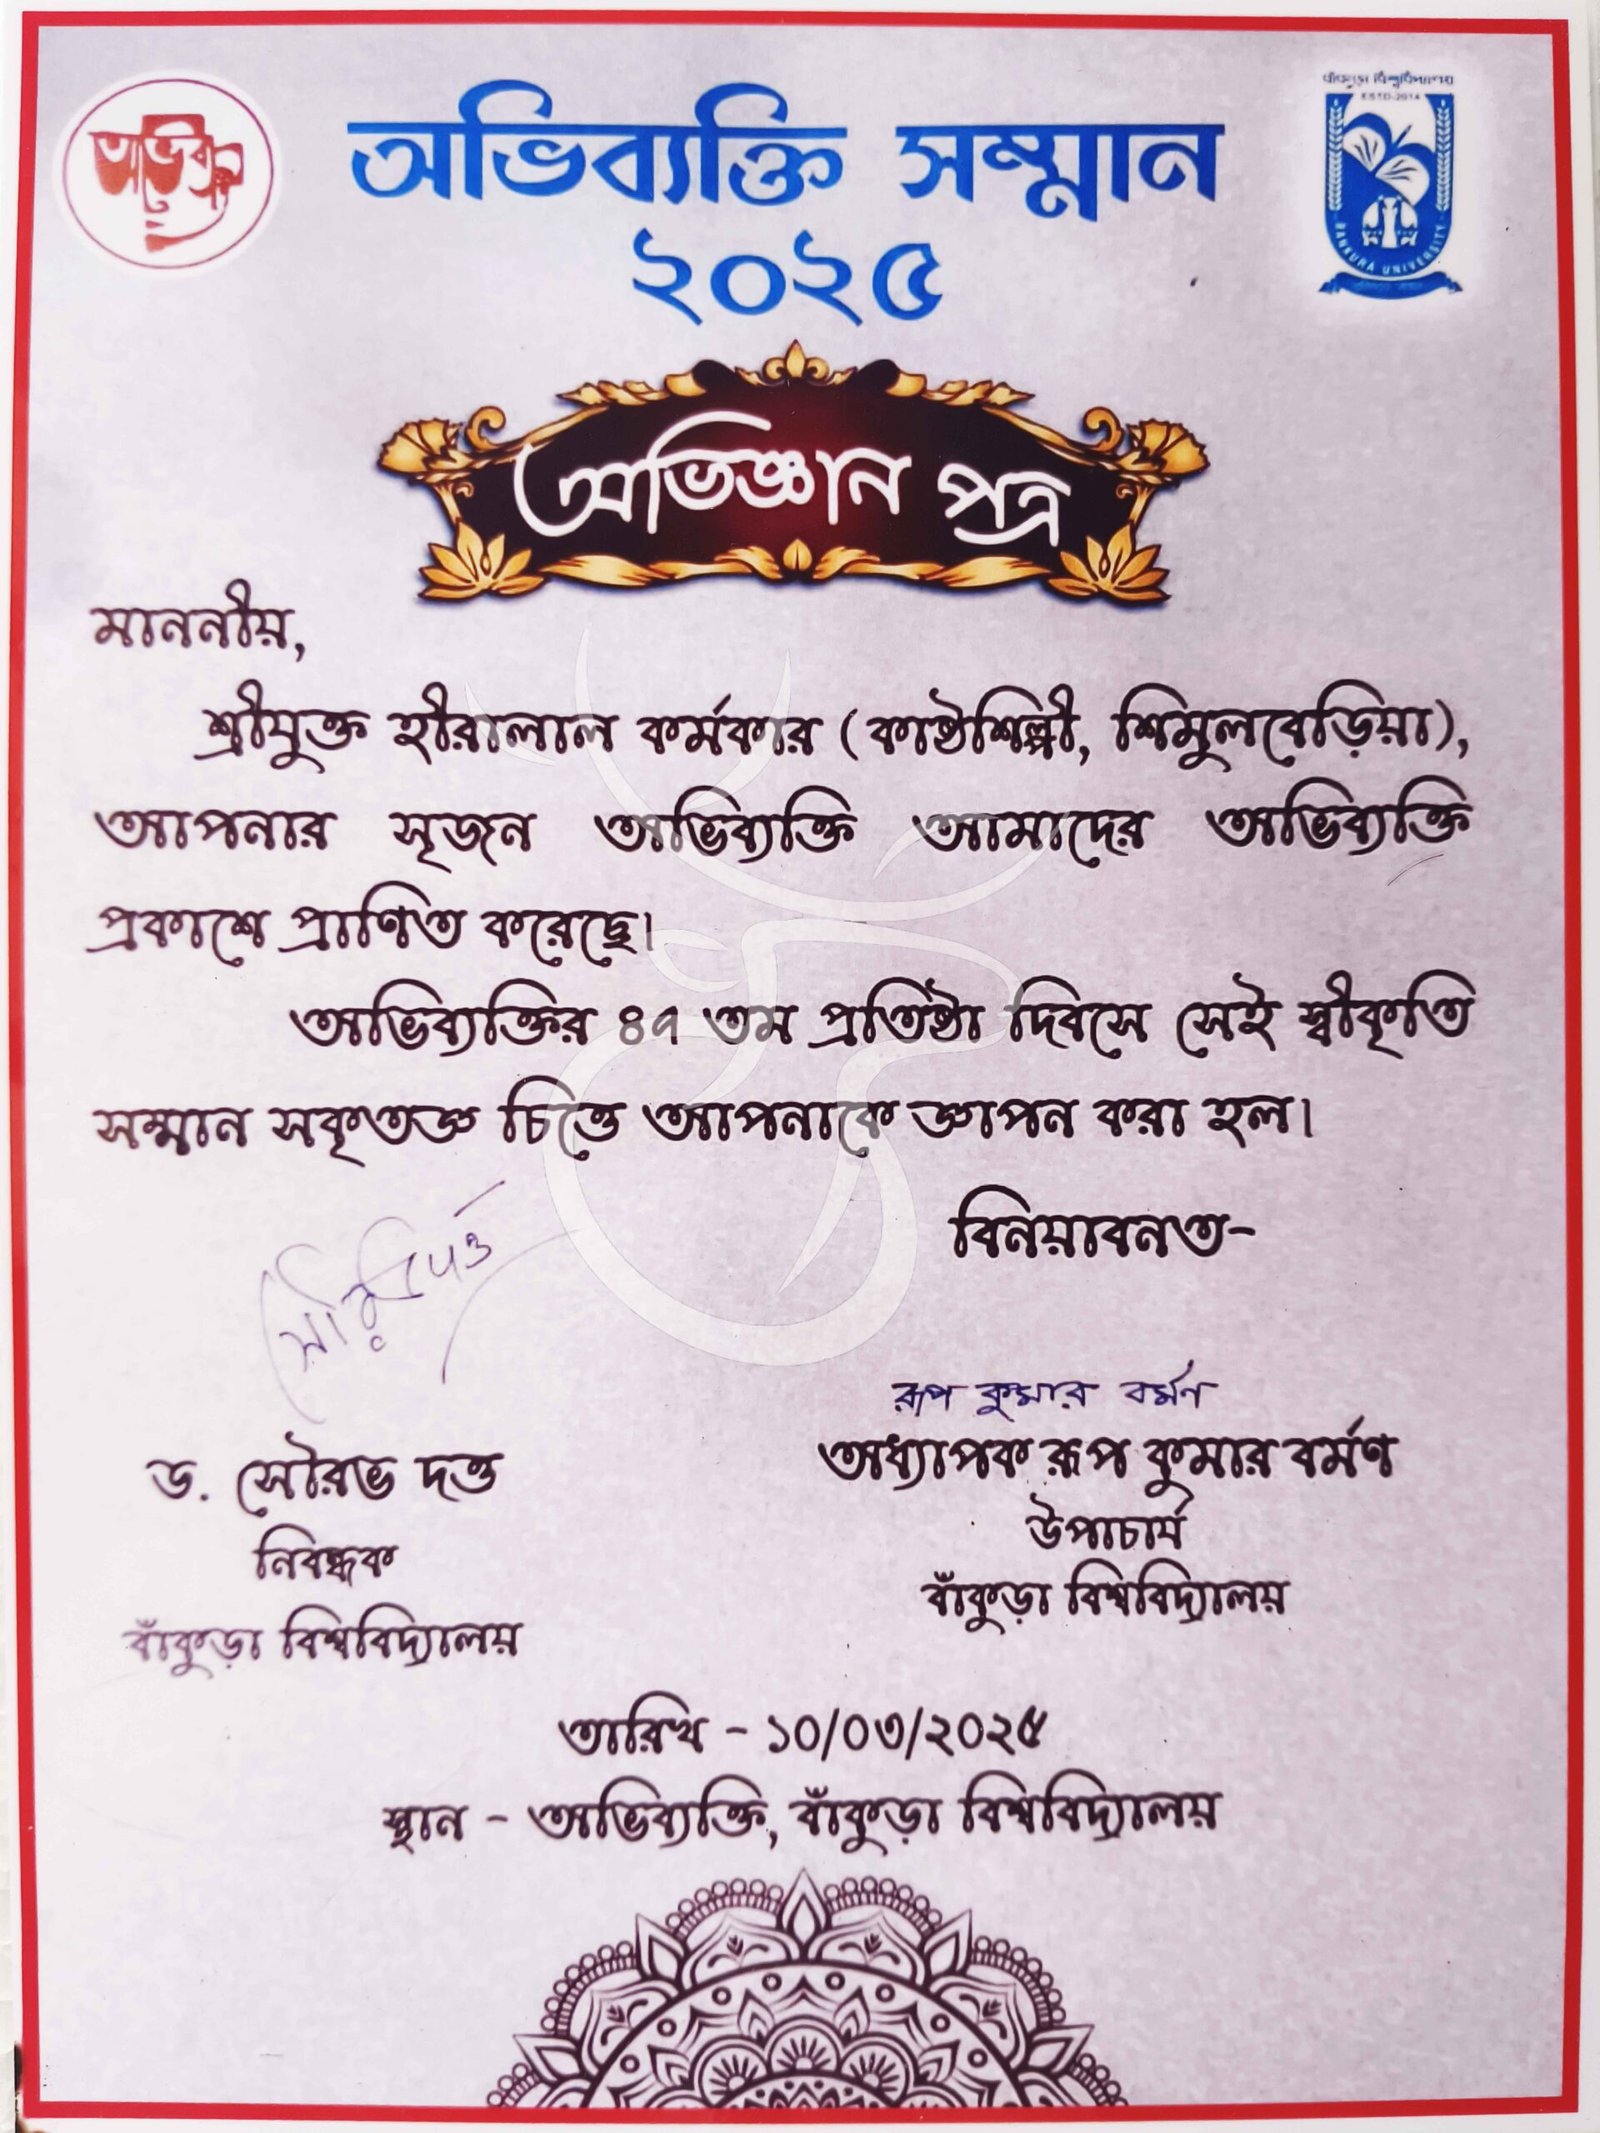 অভিব্যক্তি
বাঁকুড়া বিশ্ববিদ্যালয়
ESTD-2014
BANKURA UNIVERSITY
অভিব্যক্তি সম্মান
২০২৫
অভিজ্ঞান পত্র
মাননীয়,
শ্রীযুক্ত হীরালাল কর্মকার (কাষ্ঠশিল্পী, শিমুলবেড়িয়া),
আপনার সৃজন অভিব্যক্তি আমাদের অভিব্যক্তি
প্রকাশে প্রাণিত করেছে।
অভিব্যক্তির ৪৭ তম প্রতিষ্ঠা দিবসে সেই স্বীকৃতি
সম্মান সকৃতজ্ঞ চিত্তে আপনাকে জ্ঞাপন করা হল।
বিনয়াবনত-
রূপ কুমার বর্মণ
ড. সৌরভ দত্ত
নিবন্ধক
বাঁকুড়া বিশ্ববিদ্যালয়
অধ্যাপক রূপ কুমার বর্মণ
উপাচার্য
বাঁকুড়া বিশ্ববিদ্যালয়
তারিখ - ১০/০৩/২০২৫
স্থান - অভিব্যক্তি, বাঁকুড়া বিশ্ববিদ্যালয়